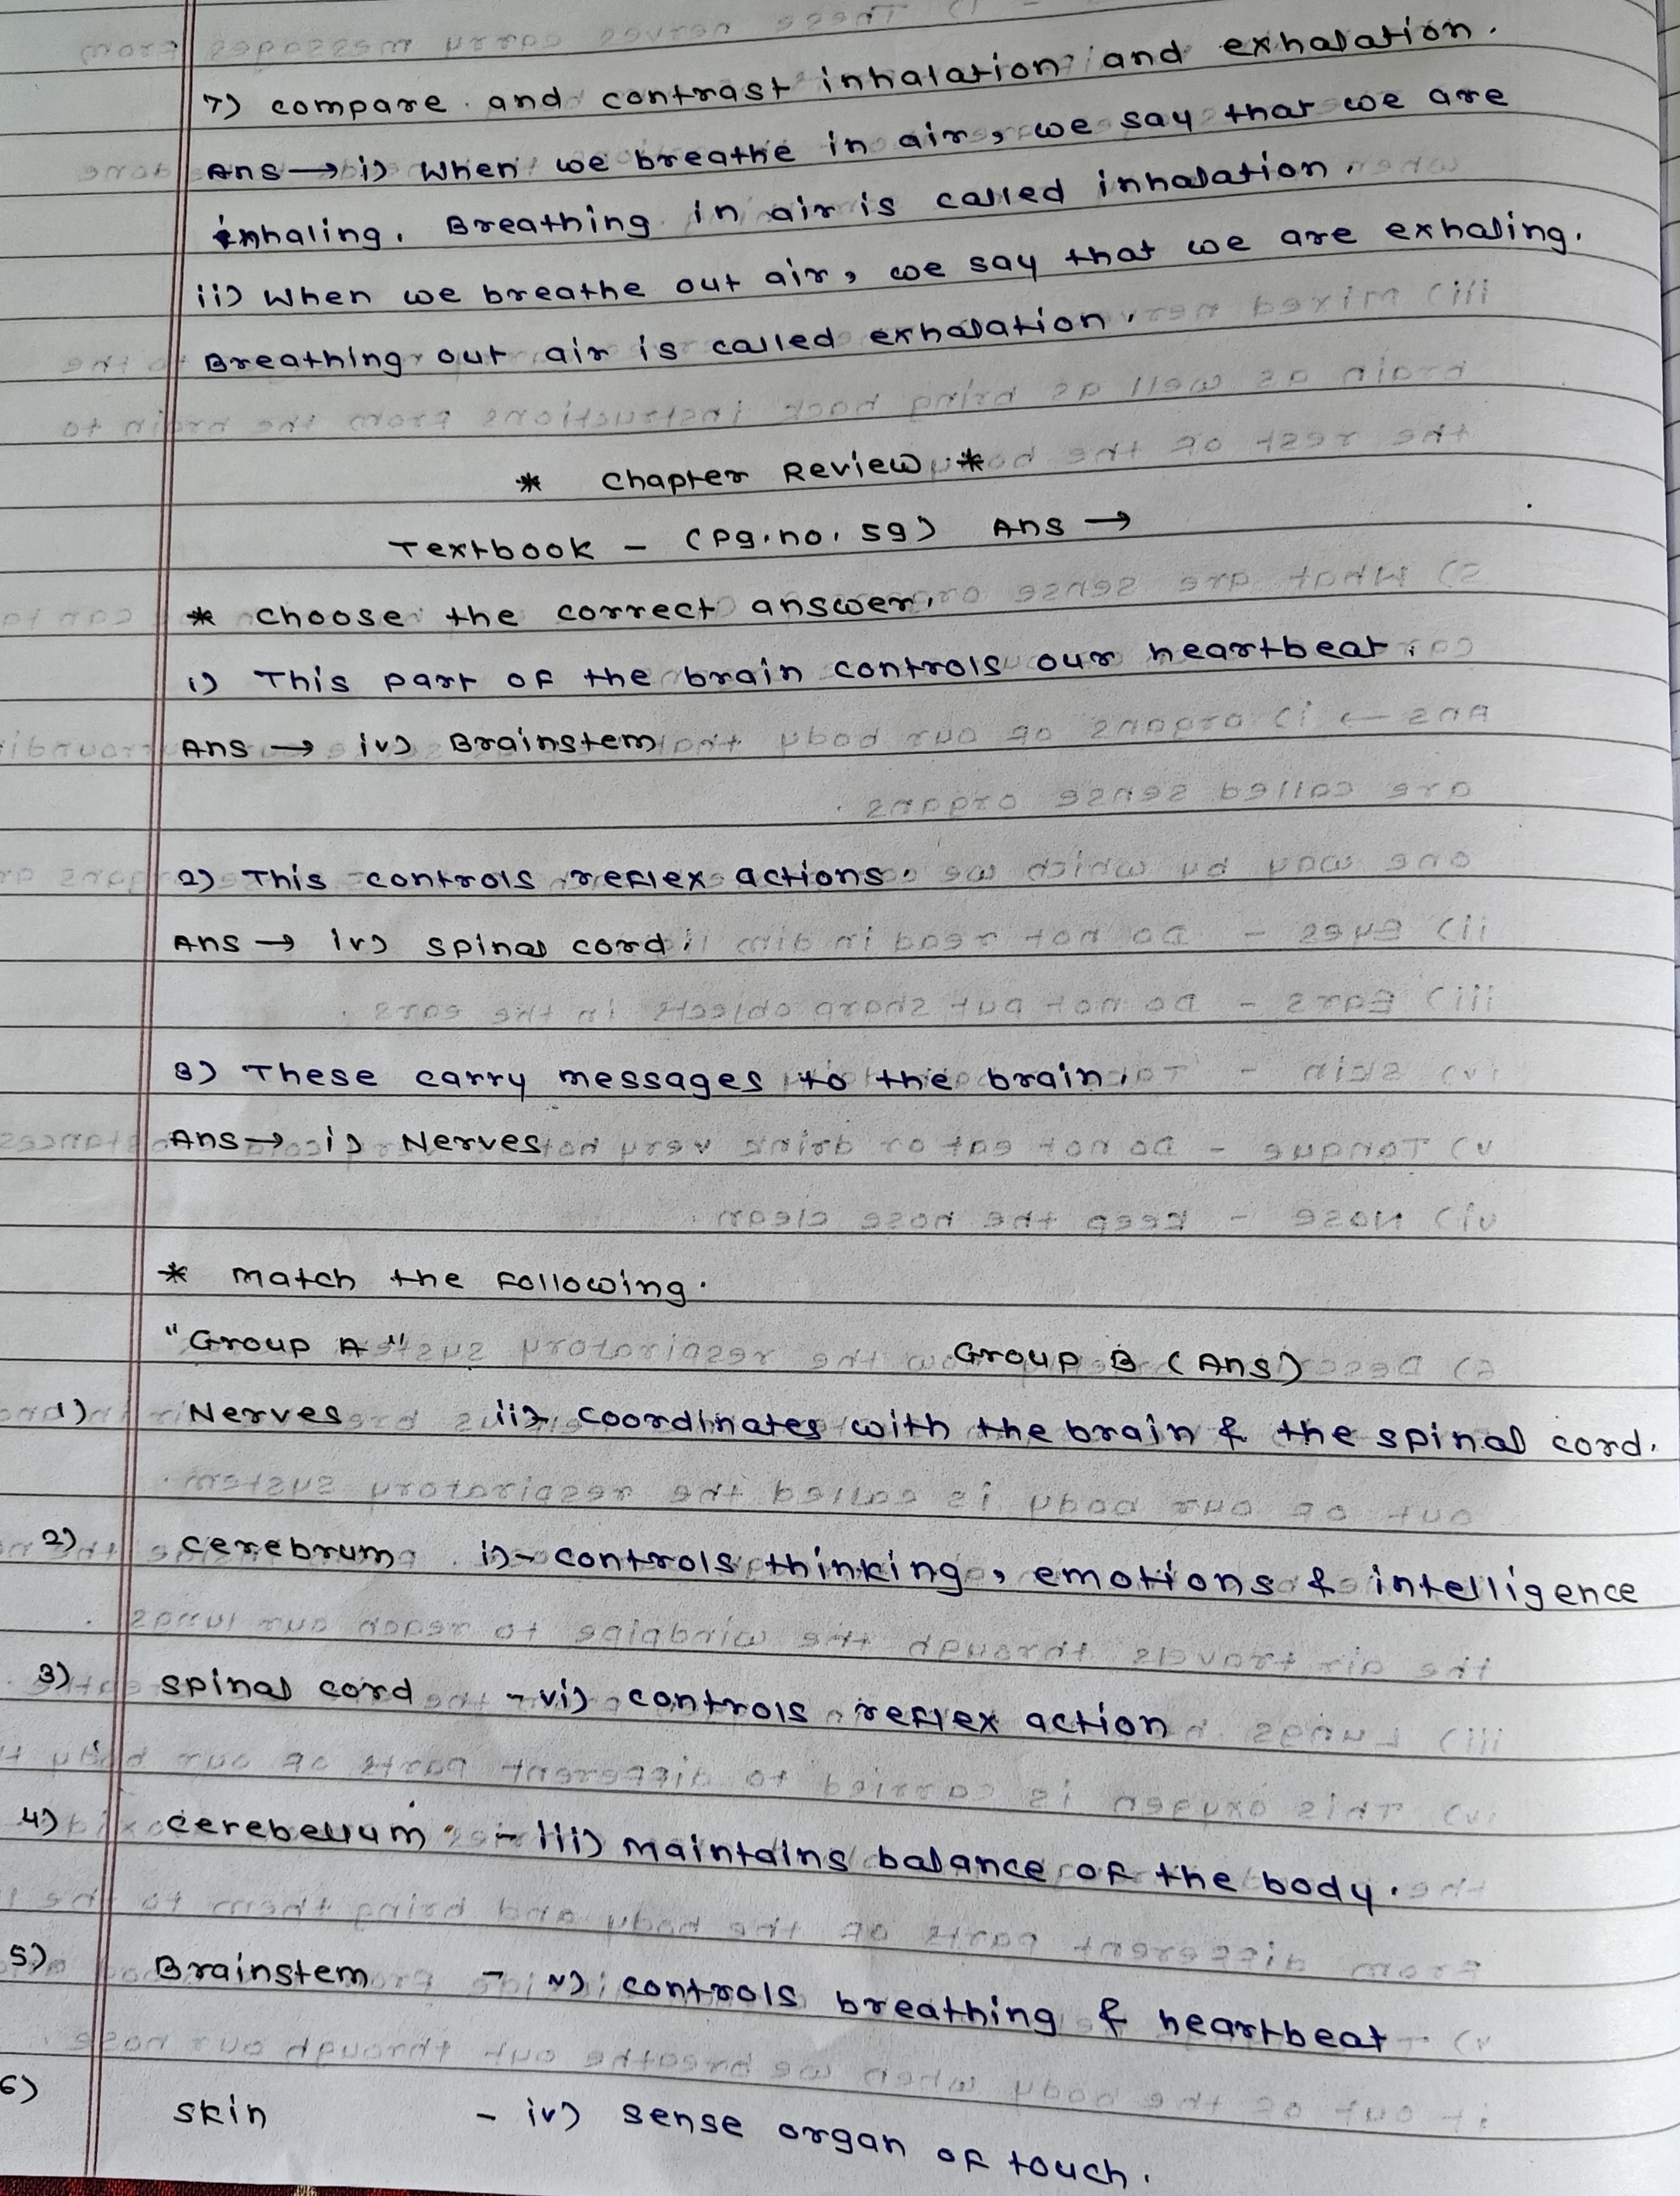 7) compare and contrast inhalation and exhalation.
Ans → i) When we breathe in air, we say that we are
inhaling. Breathing in air is called inhalation.
ii) When we breathe out air, we say that we are exhaling.
Breathing out air is called exhalation.
* Chapter Review *
Textbook - (Pg.no. 59) Ans →
* choose the correct answer.
1) This part of the brain controls our heartbeat.
Ans → iv) Brainstem
2) This controls reflex actions.
Ans → iv) spinal cord
3) These carry messages to the brain.
Ans → i) Nerves
* Match the Following.
"Group A" Group B (Ans)
1) Nerves ii) coordinates with the brain & the spinal cord.
2) cerebrum i) - controls thinking, emotions & intelligence
3) spinal cord - vi) controls reflex action
4) cerebellum - iii) maintains balance of the body.
5) Brainstem - v) controls breathing & heartbeat
6) skin - iv) sense organ of touch.